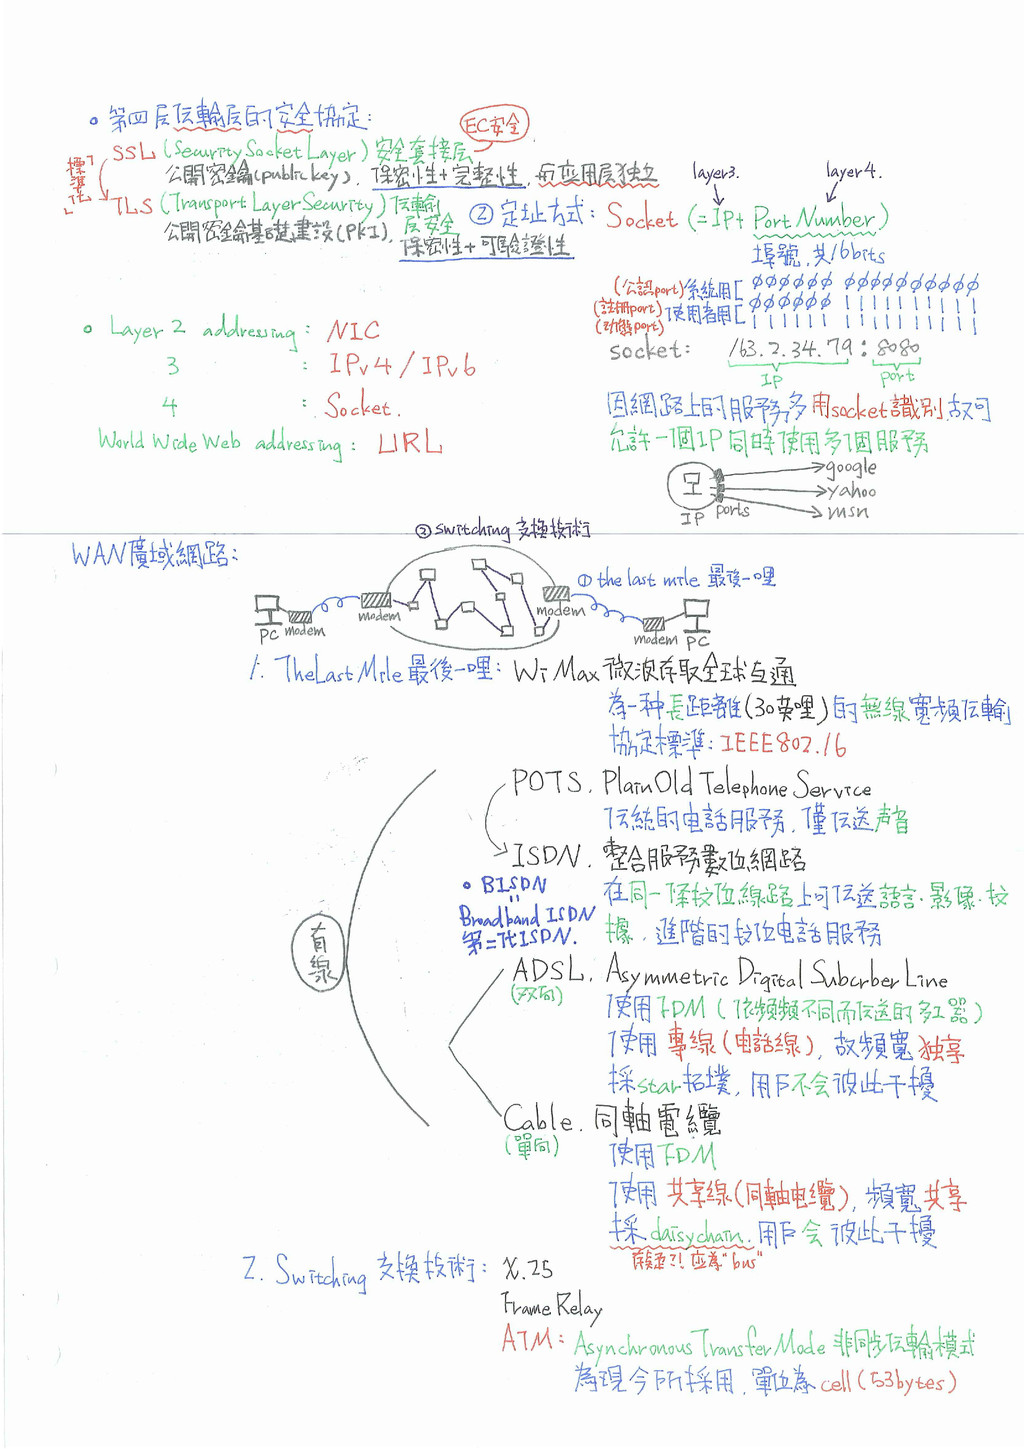 第四层伝輸层的安全協定：
EC安全
SSL (Security Socket Layer) 安全套接层
公開密鑰(public key)，保密性+完整性，与应用层独立
「標準化」
TLS (Transport Layer Security) 伝輸层安全
公開密鑰基礎建設(PKI)，保密性+可驗證性
layer3.
layer4.
② 定址方式：Socket (= IP + Port Number)
埠號，共16bits
(公認port)系統用[ 000000 0000000000
(註冊port)使用者用[ 000000 1111111111
(动態port) 111111 1111111111
socket： 163.2.34.79 : 8080
IP port
因網路上的服務多用socket識別，故可
允許一個IP同時使用多個服務
google
yahoo
msn
IP ports
Layer 2 addressing： NIC
3 ： IPv4 / IPv6
4 ： Socket.
World Wide Web addressing： URL
② switching 交換技術
WAN廣域網路：
① the last mile 最後一哩
PC modem modem modem modem PC
1. The Last Mile 最後一哩：Wi Max 微波存取全球互通
為一种長距離(30英哩)的無線寬頻伝輸
協定標準：IEEE802.16
有線
POTS. Plain Old Telephone Service
伝統的电話服務，僅伝送声音
ISDN. 整合服務數位網路
在同一條数位線路上可伝送語言·影像·数
據，進階的数位电話服務
BISDN
"
Broadband ISDN
第二代ISDN.
ADSL. Asymmetric Digital Subcrber Line
(双向)
使用FDM (依頻頻不同而伝送的多工器)
使用 專線(电話線)，故頻寬独享
採star拓墣，用戶不会彼此干擾
Cable. 同軸電纜
(單向)
使用FDM
使用 共享線(同軸电纜)，頻寬共享
採daisychain. 用戶会彼此干擾
應為"bus"
2. Switching 交換技術：X.25
Frame Relay
ATM：Asynchronous Transfer Mode 非同步伝輸模式
為現今所採用，單位為cell(53bytes)